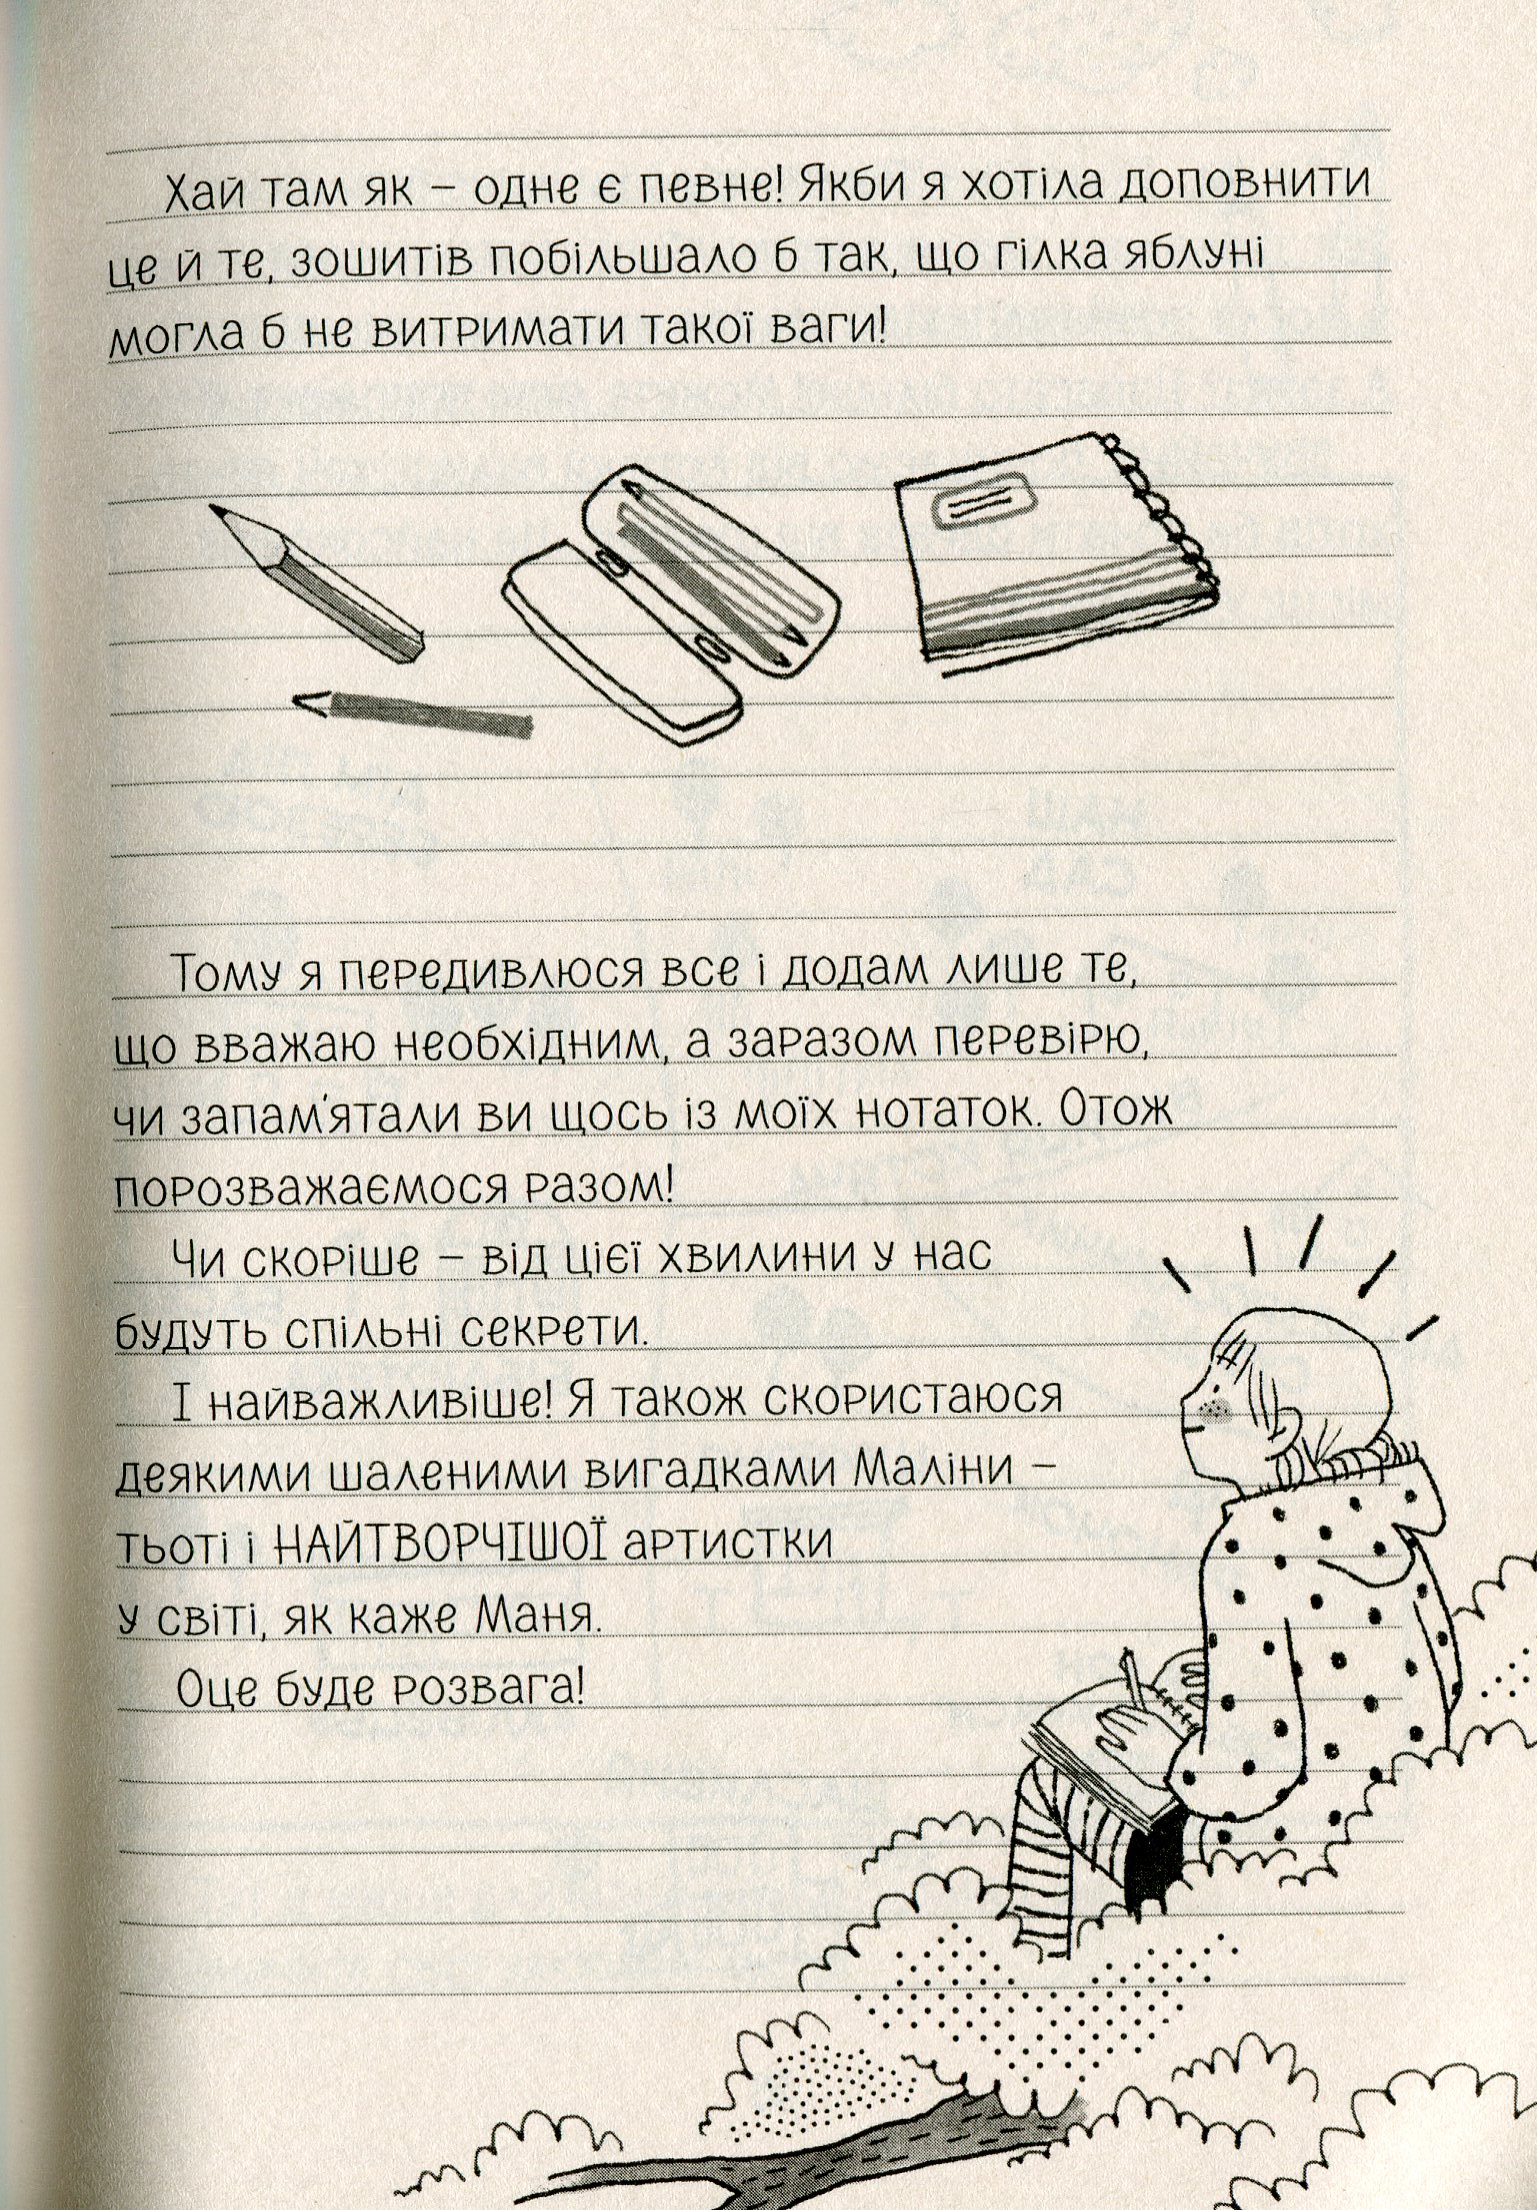 Хай там як – одне є певне! Якби я хотіла доповнити
це й те, зошитів побільшало б так, що гілка яблуні
могла б не витримати такої ваги!
Тому я передивлюся все і додам лише те,
що вважаю необхідним, а заразом перевірю,
чи запам'ятали ви щось із моїх нотаток. Отож
порозважаємося разом!
Чи скоріше – від цієї хвилини у нас
будуть спільні секрети.
І найважливіше! Я також скористаюся
деякими шаленими вигадками Маліни –
тьоті і НАЙТВОРЧІШОЇ артистки
у світі, як каже Маня.
Оце буде розвага!